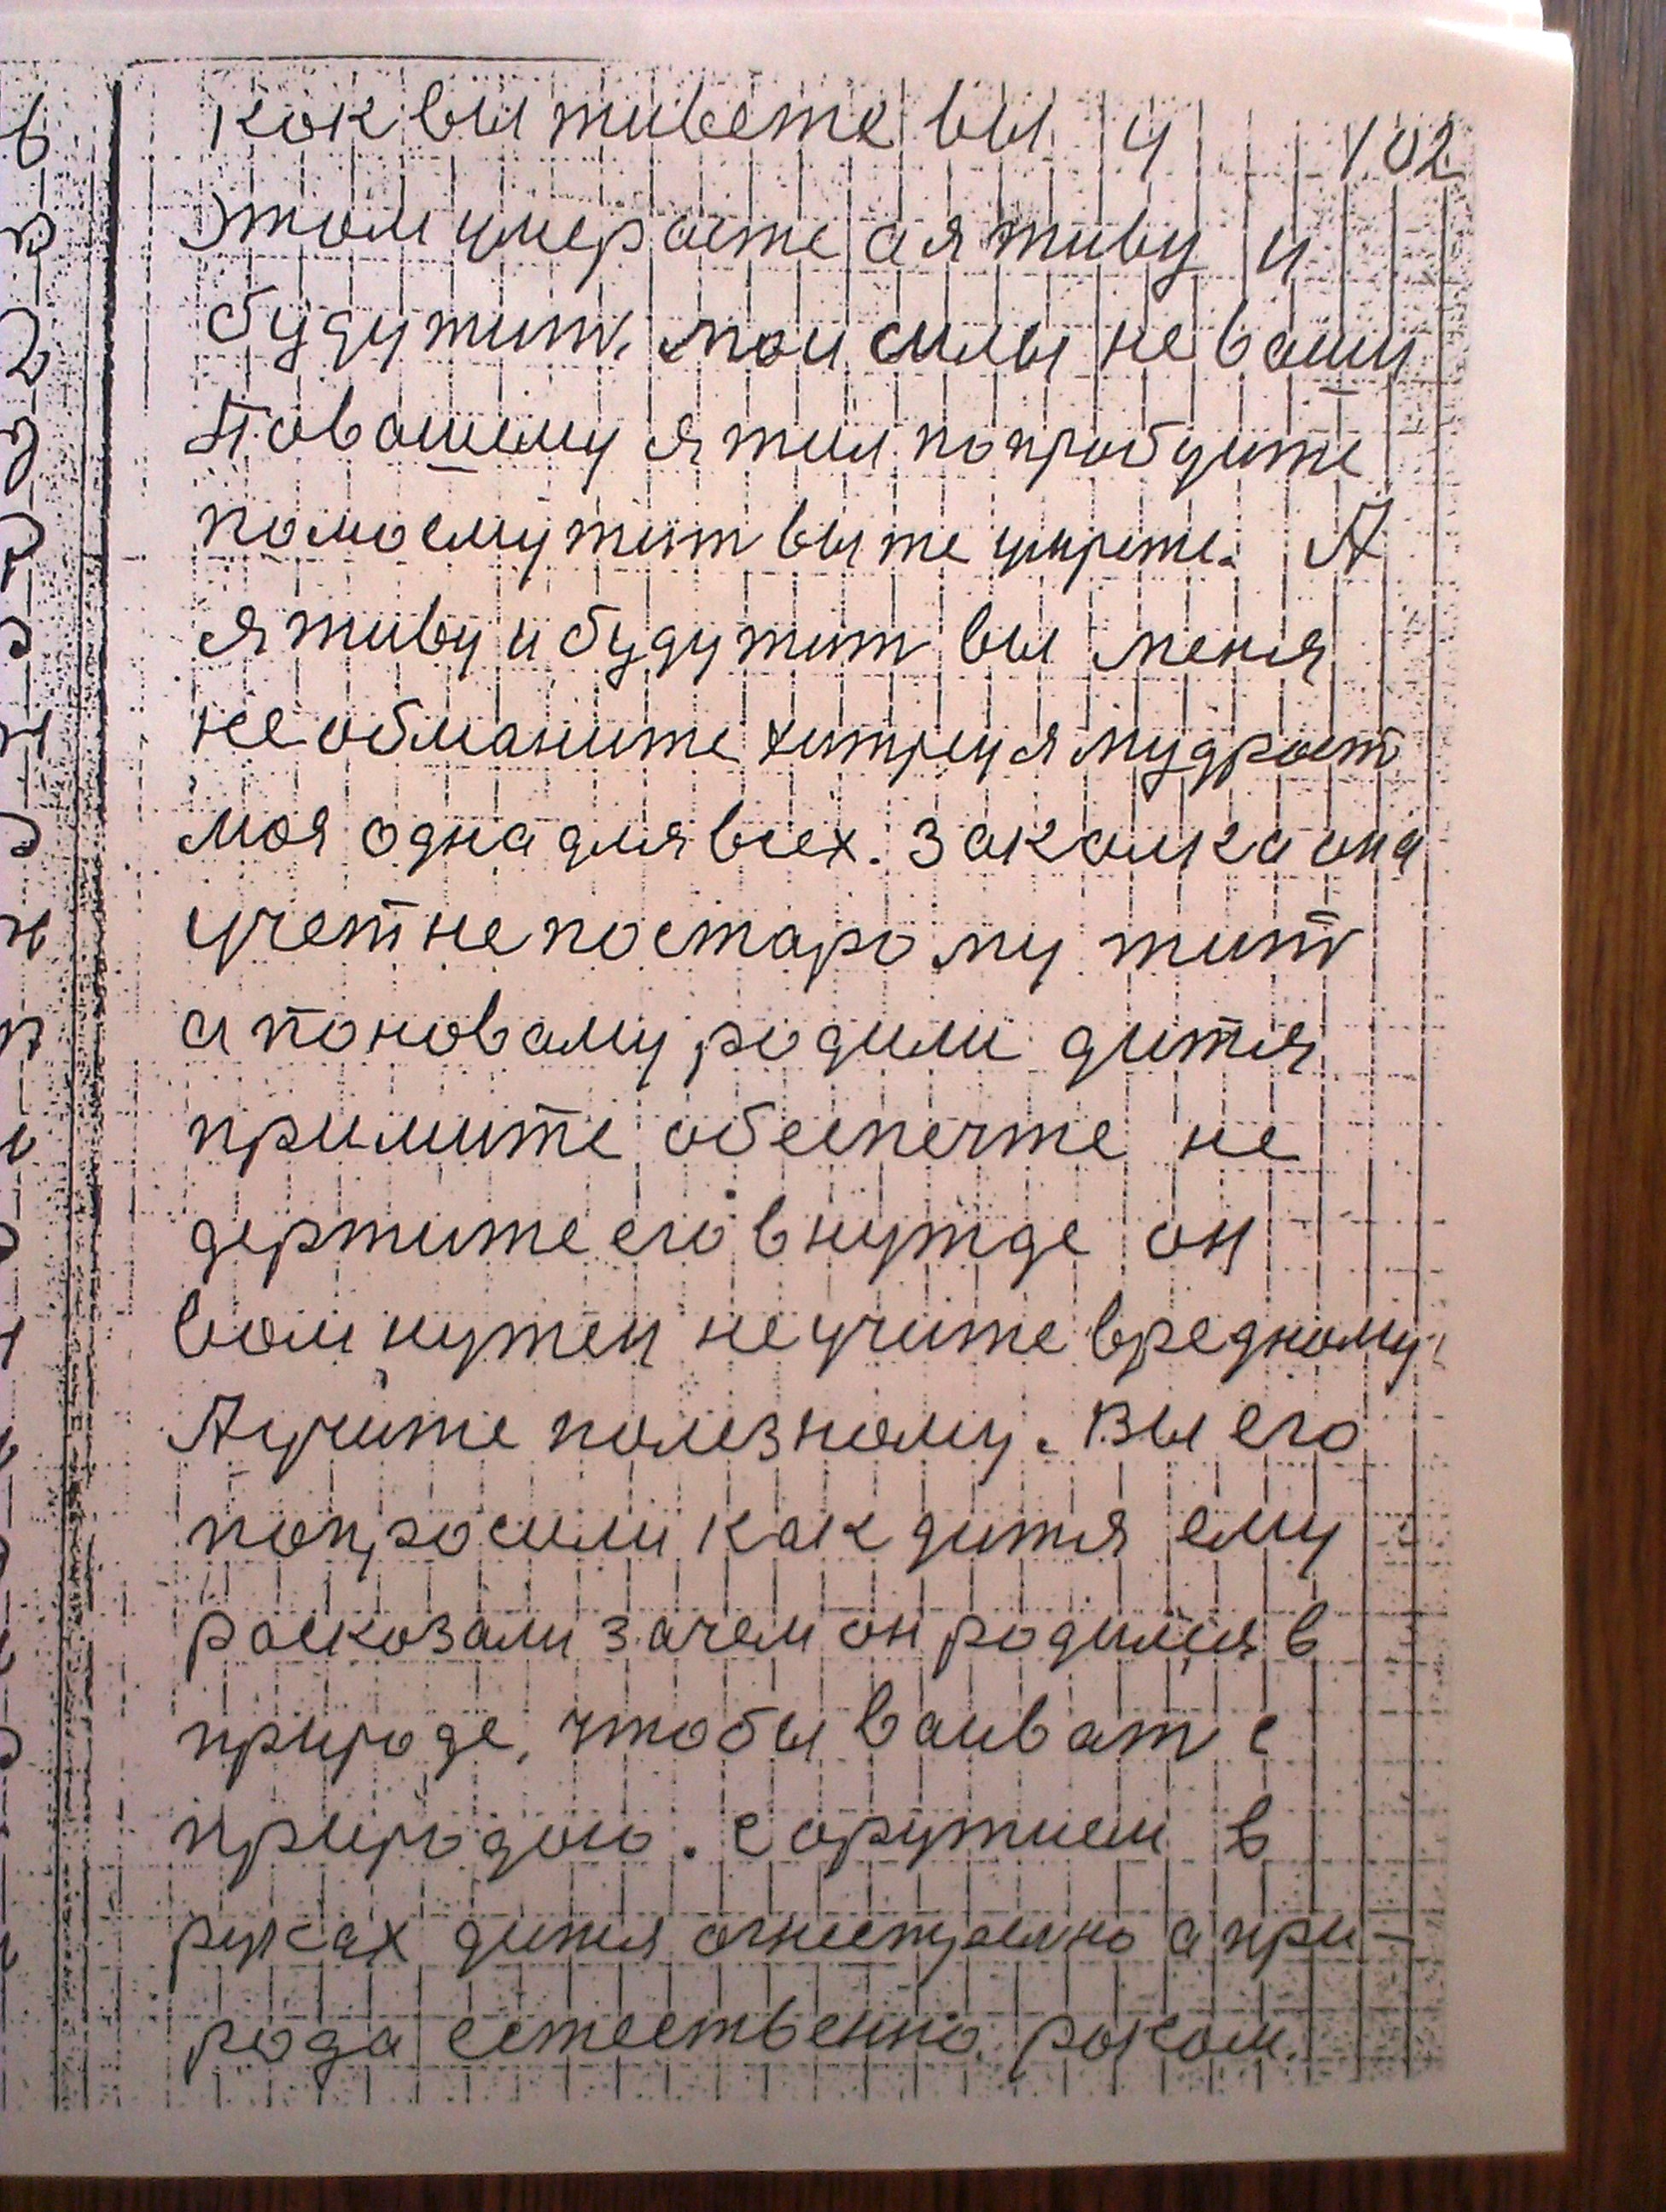 как вы живете вы у 102
этом умераете а я живу и
буду жит, мои силы не ваши
По вашему я жил попробуите
помоему жит вы же умрете. А
я живу и буду жит вы меня
не обманите хитрец я мудрост
моя одна для всех. Закалка она
учет не по старо му жит
а по новаму, родили дитя
примите обеспечте не
держите его в нужде он
вам нужен не учите вредному
А учите полезному. Вы его
попросили как дитя ему
расказали зачем он родился в
природе, чтобы ваиват с
природою. с оружием в
руках дитя огнестрелно а при-
рода естественно, роком.